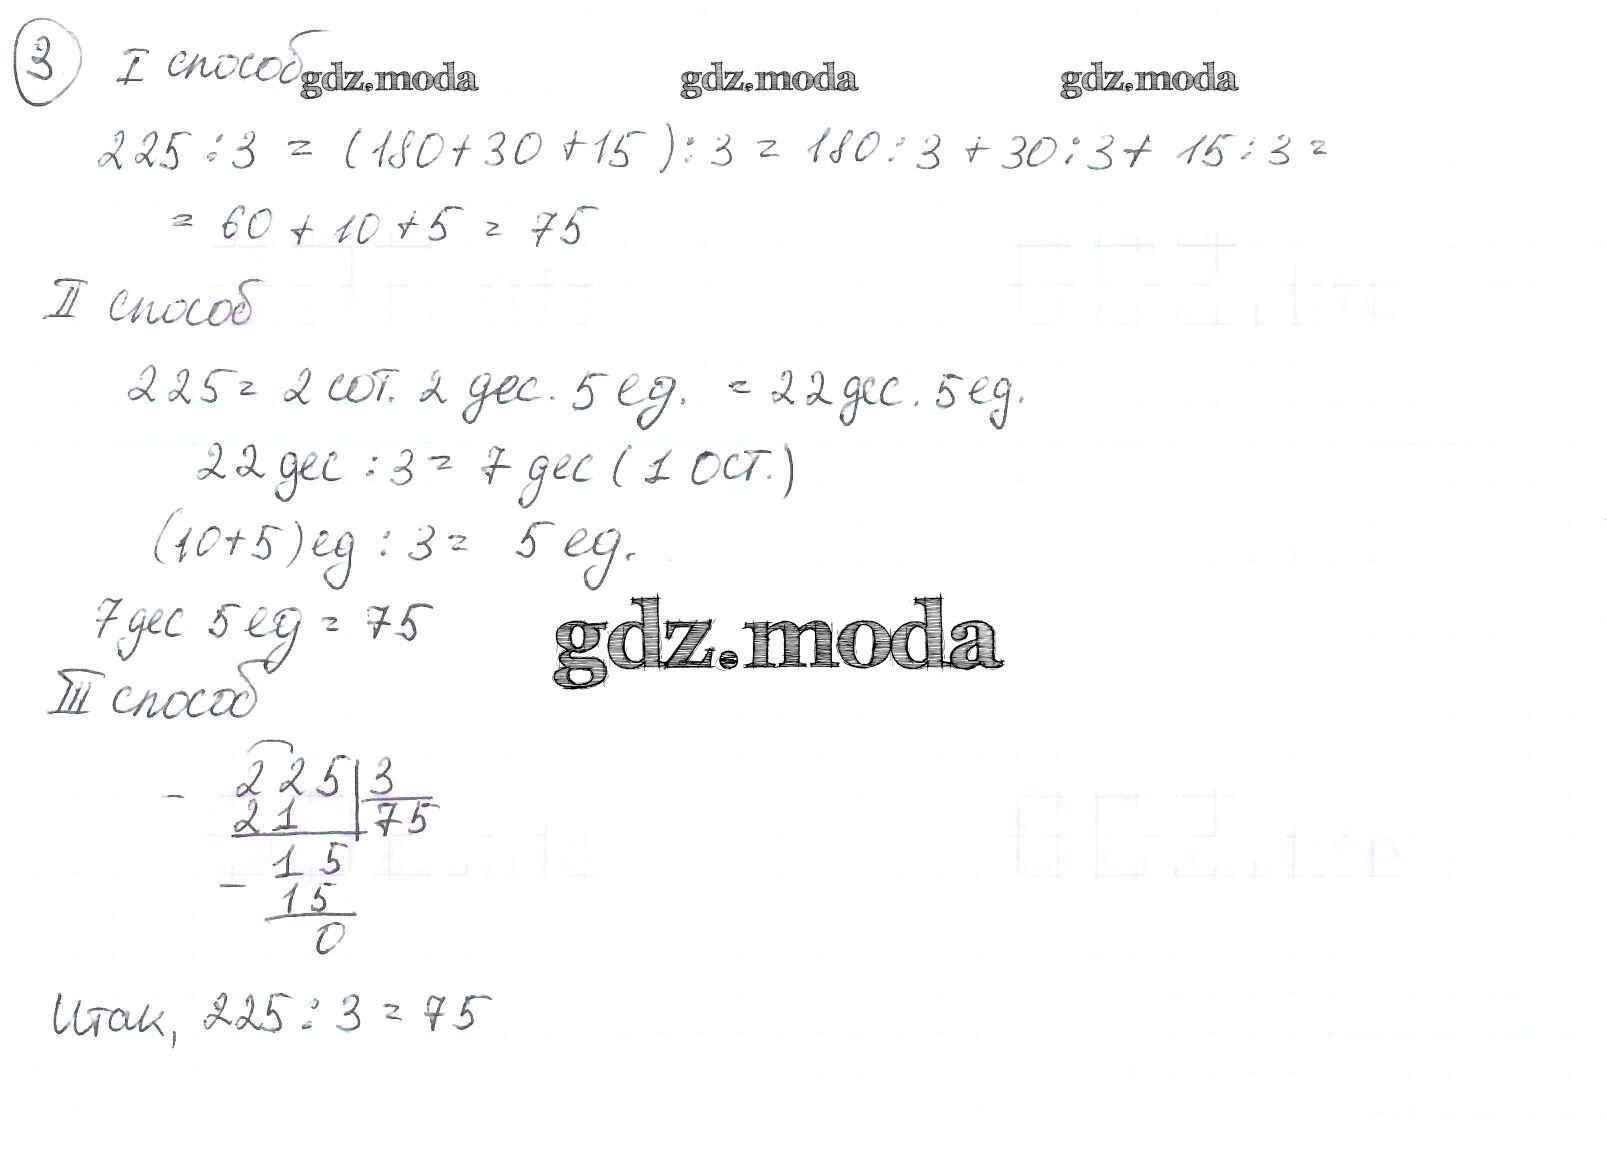 3 I способ
gdz.moda gdz.moda gdz.moda
225 : 3 = (180 + 30 + 15) : 3 = 180 : 3 + 30 : 3 + 15 : 3 =
= 60 + 10 + 5 = 75
II способ
225 = 2 сот. 2 дес. 5 ед. = 22 дес. 5 ед.
22 дес : 3 = 7 дес (1 ост.)
(10+5) ед : 3 = 5 ед.
7 дес 5 ед = 75
gdz.moda
III способ
- 225 | 3
21 | 75
15
- 15
0
Итак, 225 : 3 = 75